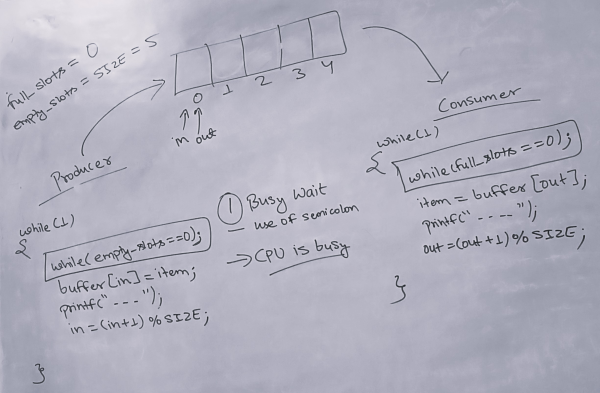 full_slots = 0
empty_slots = SIZE = 5
0 1 2 3 4
in out
Producer
while(1)
{
while(empty_slots==0);
buffer[in]=item;
printf("----");
in=(in+1)%SIZE;
}
① Busy Wait
use of semicolon
→ CPU is busy
Consumer
while(1)
{
while(full_slots==0);
item=buffer[out];
printf("----");
out=(out+1)%SIZE;
}